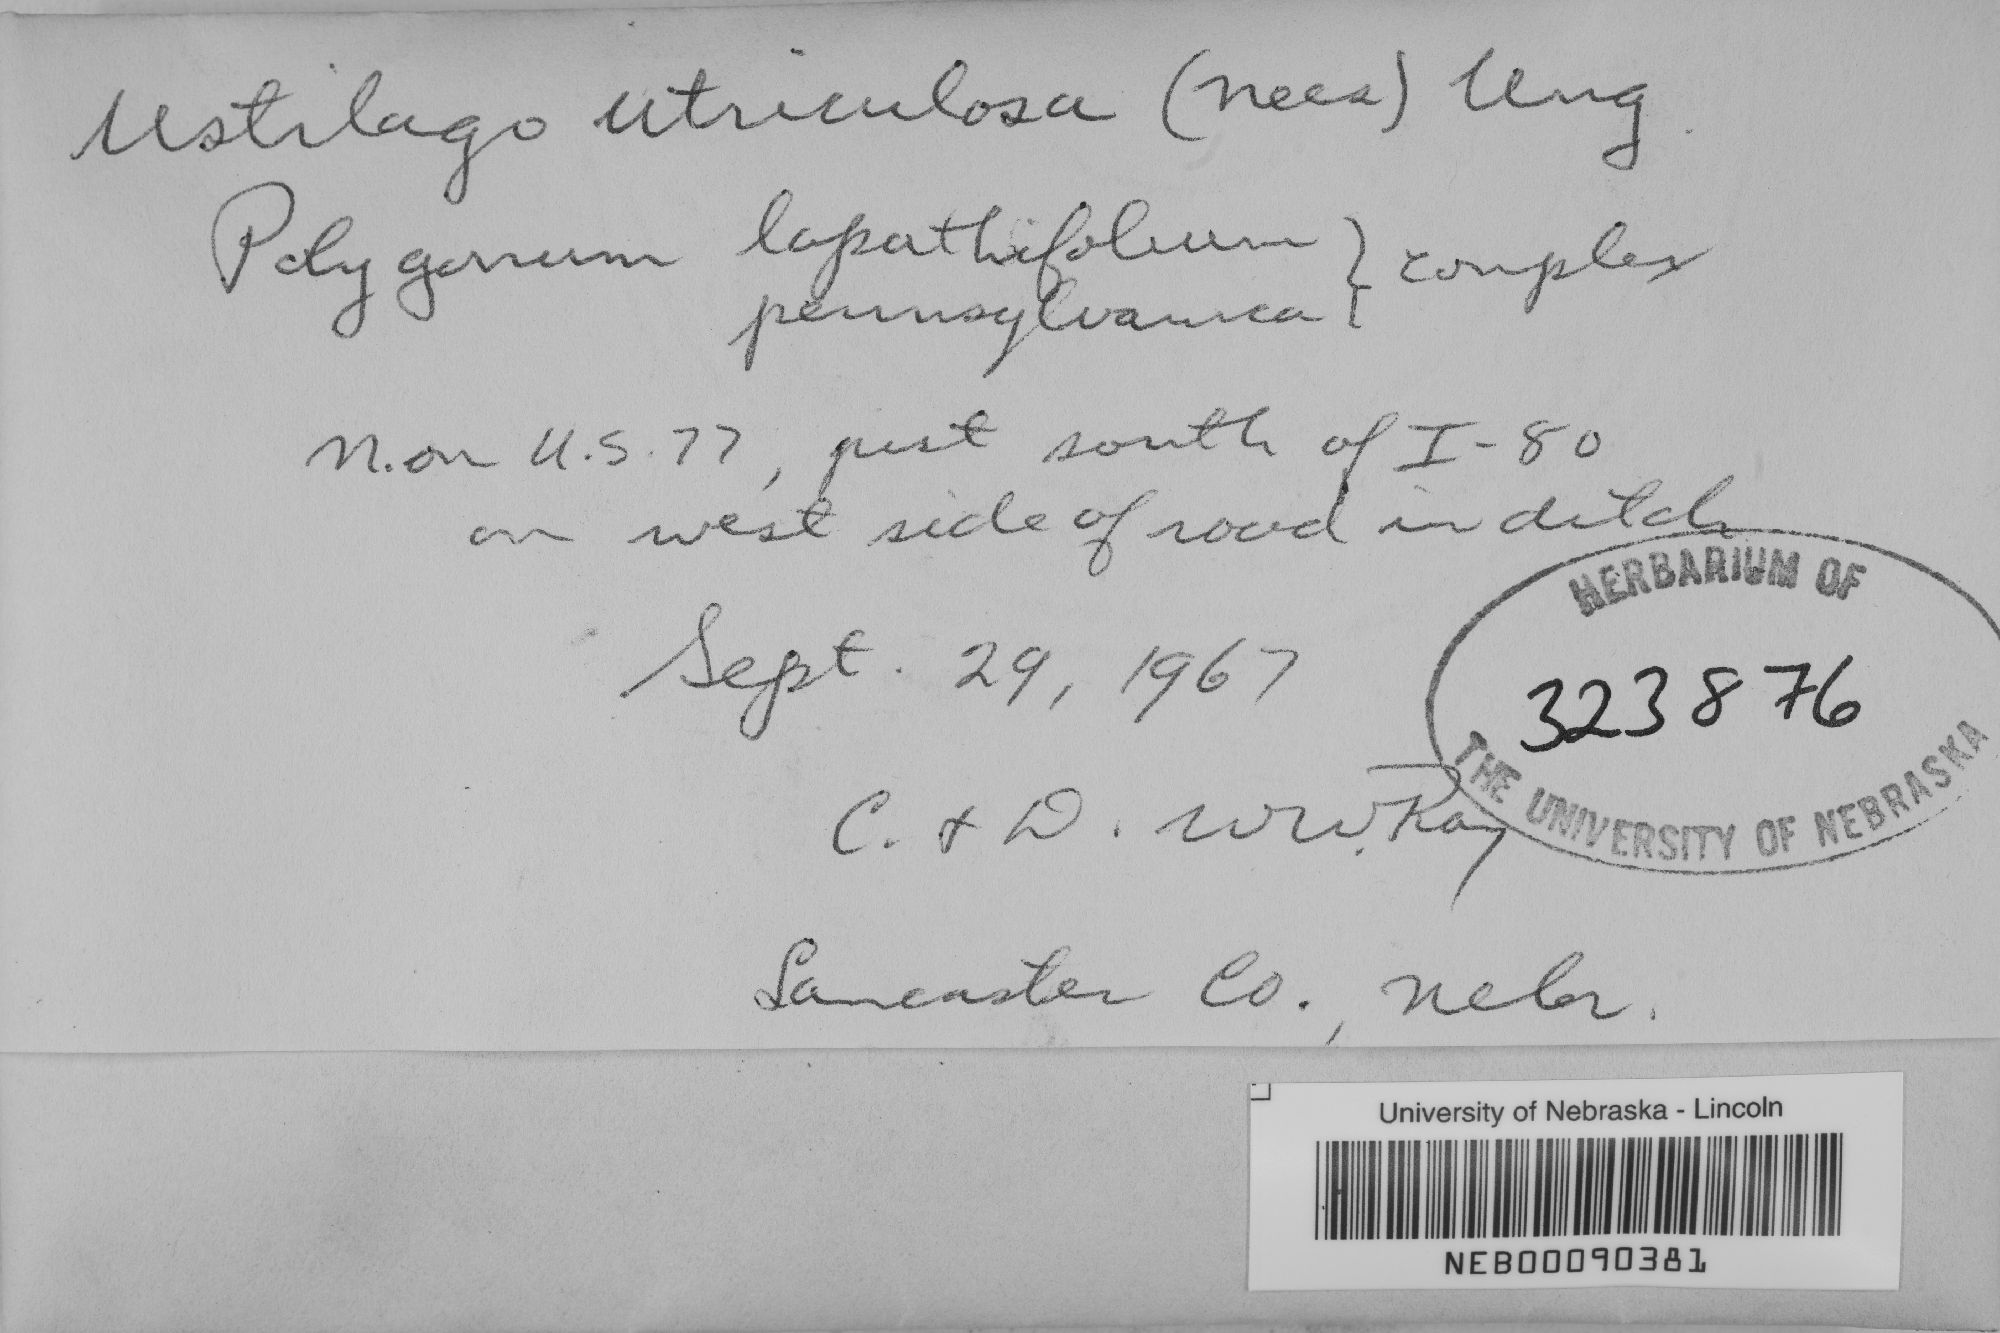 Ustilago utriculosa (Nees) Ung.
Polygonum lapathifolium } complex
pennsylvanica
N. on U.S. 77, just south of I-80
on west side of road in ditch
HERBARIUM OF
323876
THE UNIVERSITY OF NEBRASKA
Sept. 29, 1967
C. & D. W. Ray
Lancaster Co., Nebr.
University of Nebraska - Lincoln
NEB00090381